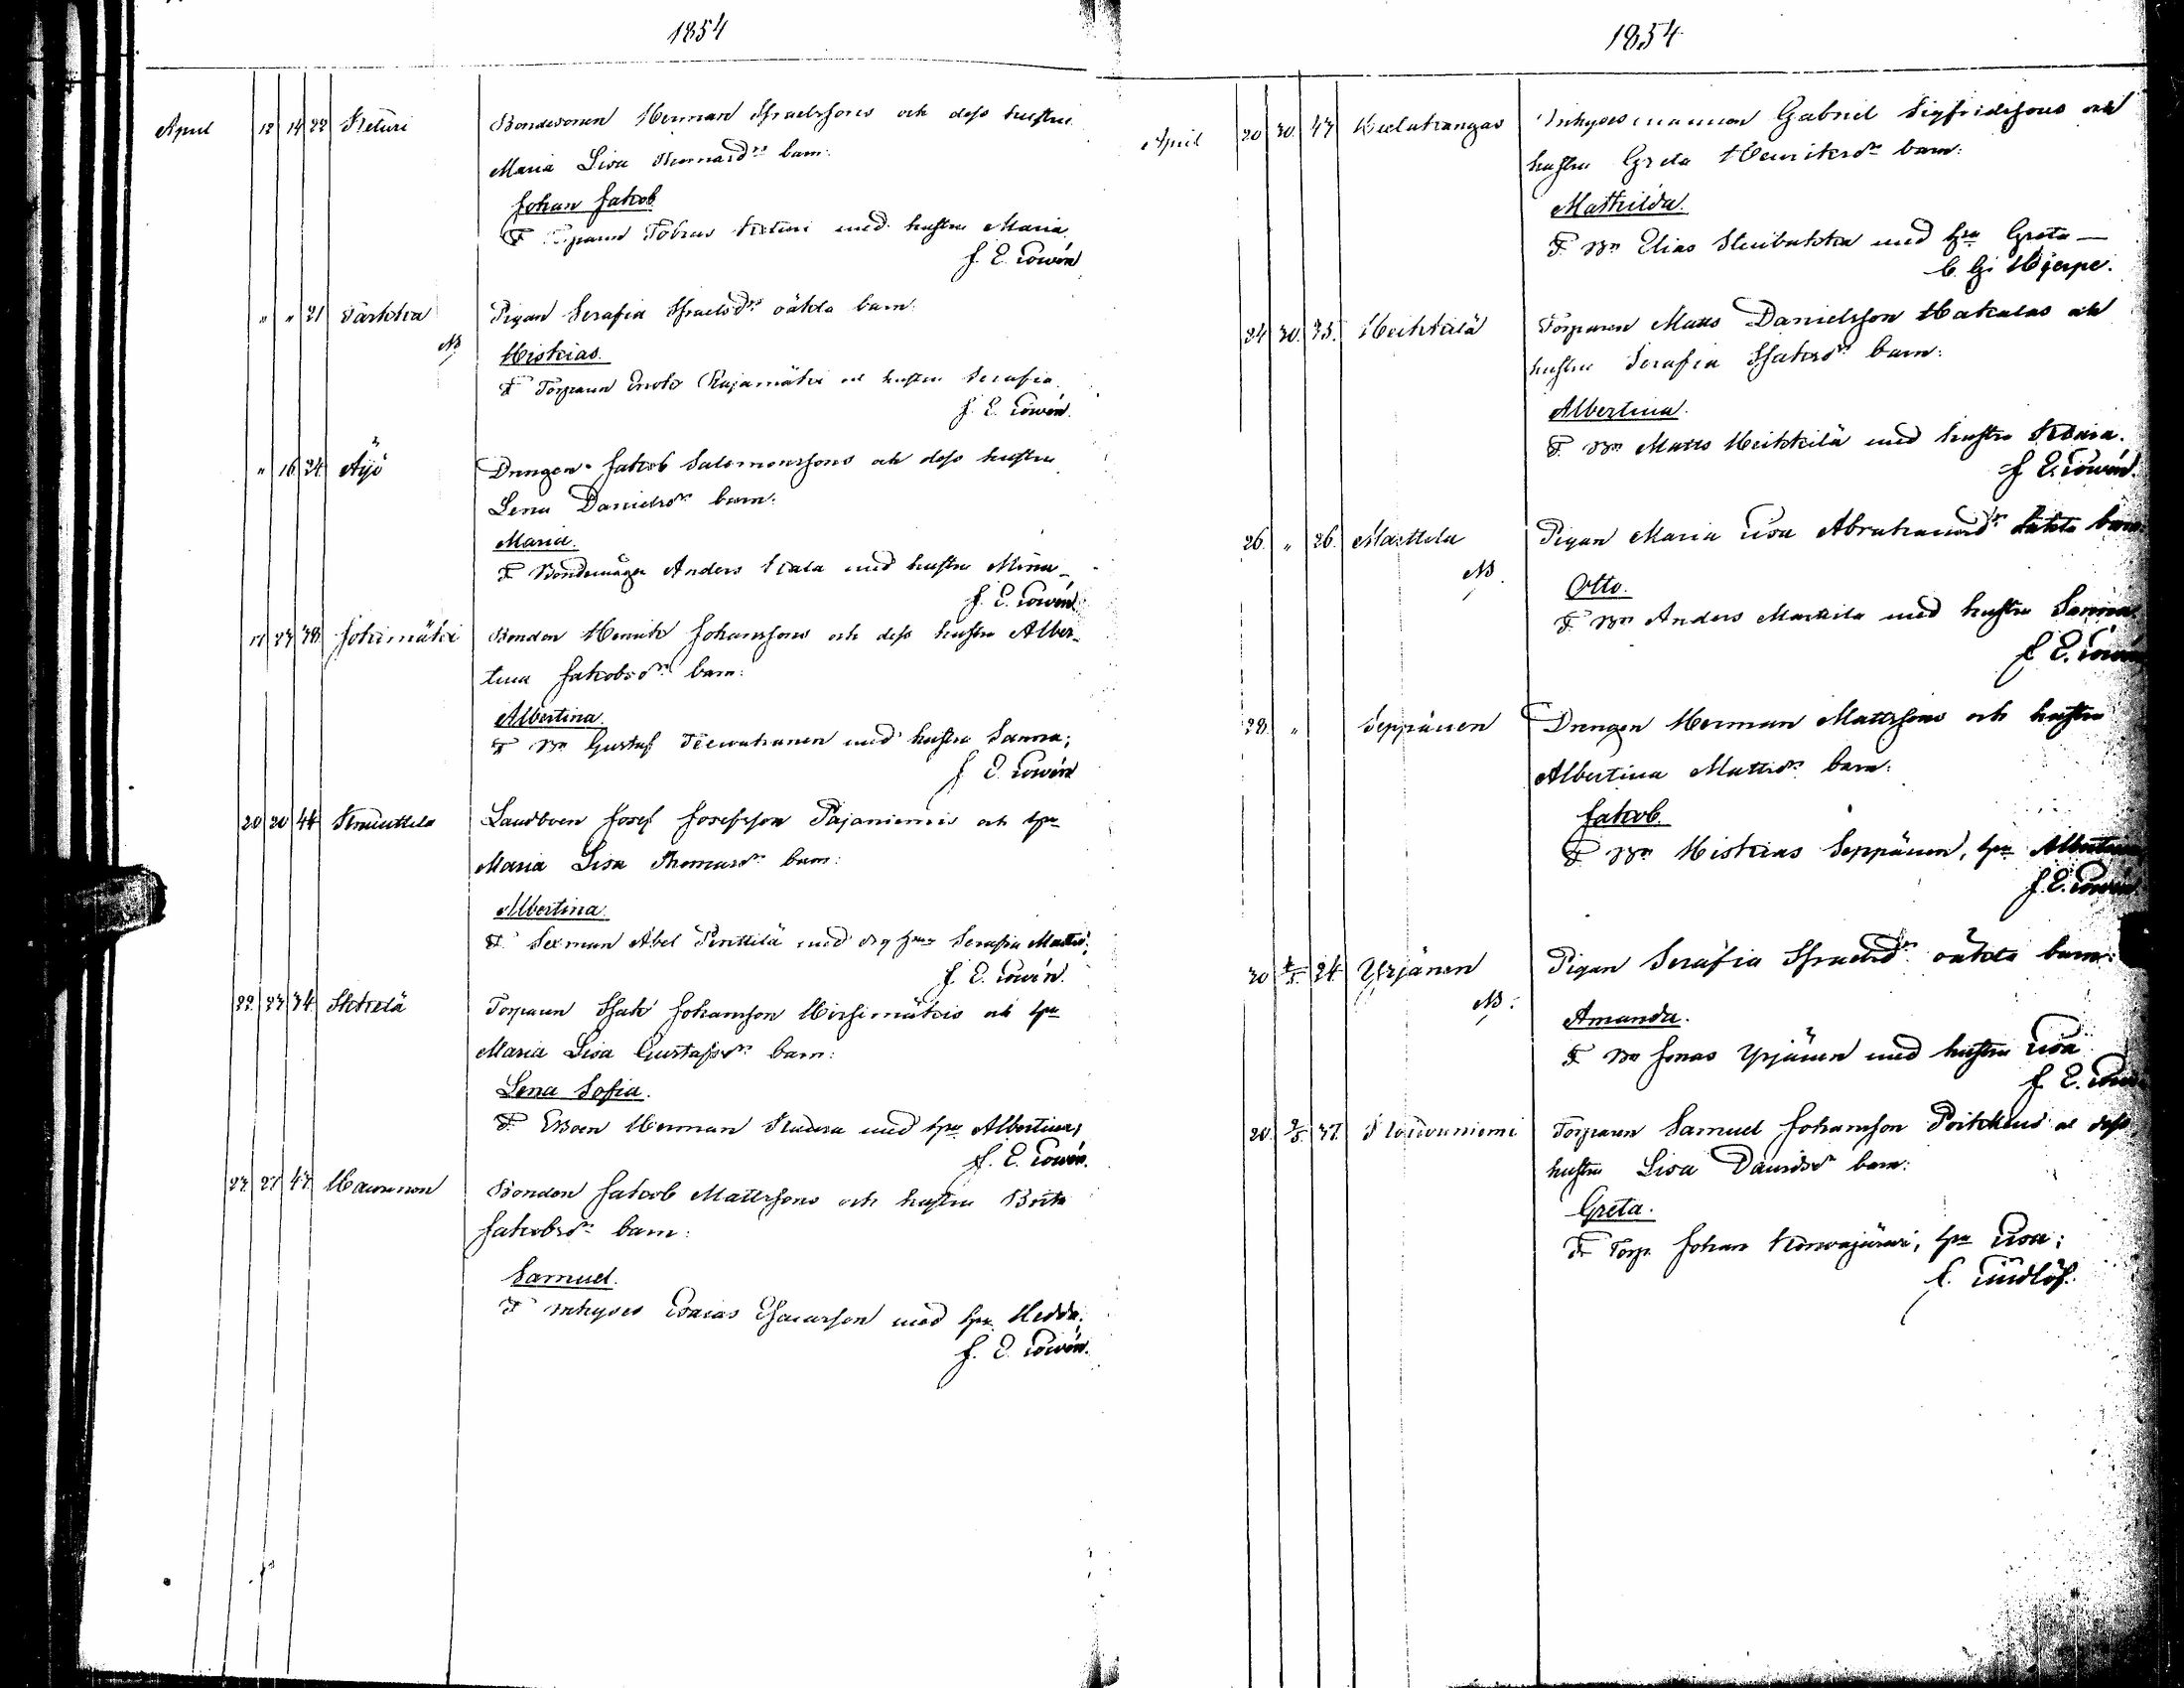 1854
April 12 14 22 Keturi Bondesonen Herman Israelssons och dess hustru
Maria Lisa Thomasdr barn:
Johan Jakob
F. Torparen Tobias Keturi med hustru Maria
J. E. Lowén
" " 21 Parkka Pigan Serafia Israelsdr oäkta barn:
NB Hiskias.
F. Torparen Enok Rajamäki oc hustru Serafia.
J. E. Lowén.
" 16 24 Äijö Drengen Jakob Salomonssons och dess hustru
Lena Danielsdr barn:
Maria.
F. Bondemågen Anders Kala med hustru Mina
J. E. Lowén.
17 23 38 Jokimäki Bonden Henrik Johanssons och dess hustru Alber-
tina Jakobsdr barn:
Albertina.
F. Bn Gustaf med hustru Sanna;
J. E. Lowén
20 20 44 Knuuttila Landboen Josef Josefsson Pajaniemis och hru
Maria Lisa Thomasdr barn:
Albertina
F. Sexman Abel Penttilä med Serafia Mattsd.
J. E. Lowén.
22 23 34 Torparen Isak Johansson Hirsimäkis och hru
Maria Lisa Gustafsdr barn:
Lena Sofia.
F. Herman med hru Albertina;
J. E. Lowén.
23 27 43 Haveronen Bonden Jakob Mattssons och hustru Brita
Jakobsdr barn:
Samuel.
F. Inhyses Esaias Esaiasson med hru Hedda;
J. E. Lowén.
1854
April 20 30 43 Kielatkangas Inhysesmannen Gabriel Sigfridssons och
hustru Greta Henriksdr barn:
Mathilda.
F. Bn Elias med hru Greta —
C. G. Hjerpe.
24 30 35. Heikkilä Torparen Matts Danielsson Hakalas och
hustru Serafia Isaksdr barn:
Albertina.
F. Bn Matts Heikkilä med hustru
J. E. Lowén.
26. " 26. Marttila Pigan Maria Lisa Abrahamsdr oäkta barn
NB. Otto.
F. Bn Anders Marttila med hustru Sanna.
J. E. Lowén
28. " Seppänen Drengen Herman Mattssons och hustru
Albertina Mattsdr barn:
Jakob.
F. Bn Hiskias Seppänen, hru Albertina
J. E. Lowén.
30 4/5 24 Yrjänen Pigan Serafia Israelsdr oäkta barn:
NB. Amanda.
F. Bn Jonas Yrjänen med hustru Lisa
J. E. Lowén
20. 7/5 37. Torparen Samuel Johansson oc dess
hustru Lisa Davidsdr barn:
Greta.
F. Torp. Johan hru Lisa;
Lindlöf.